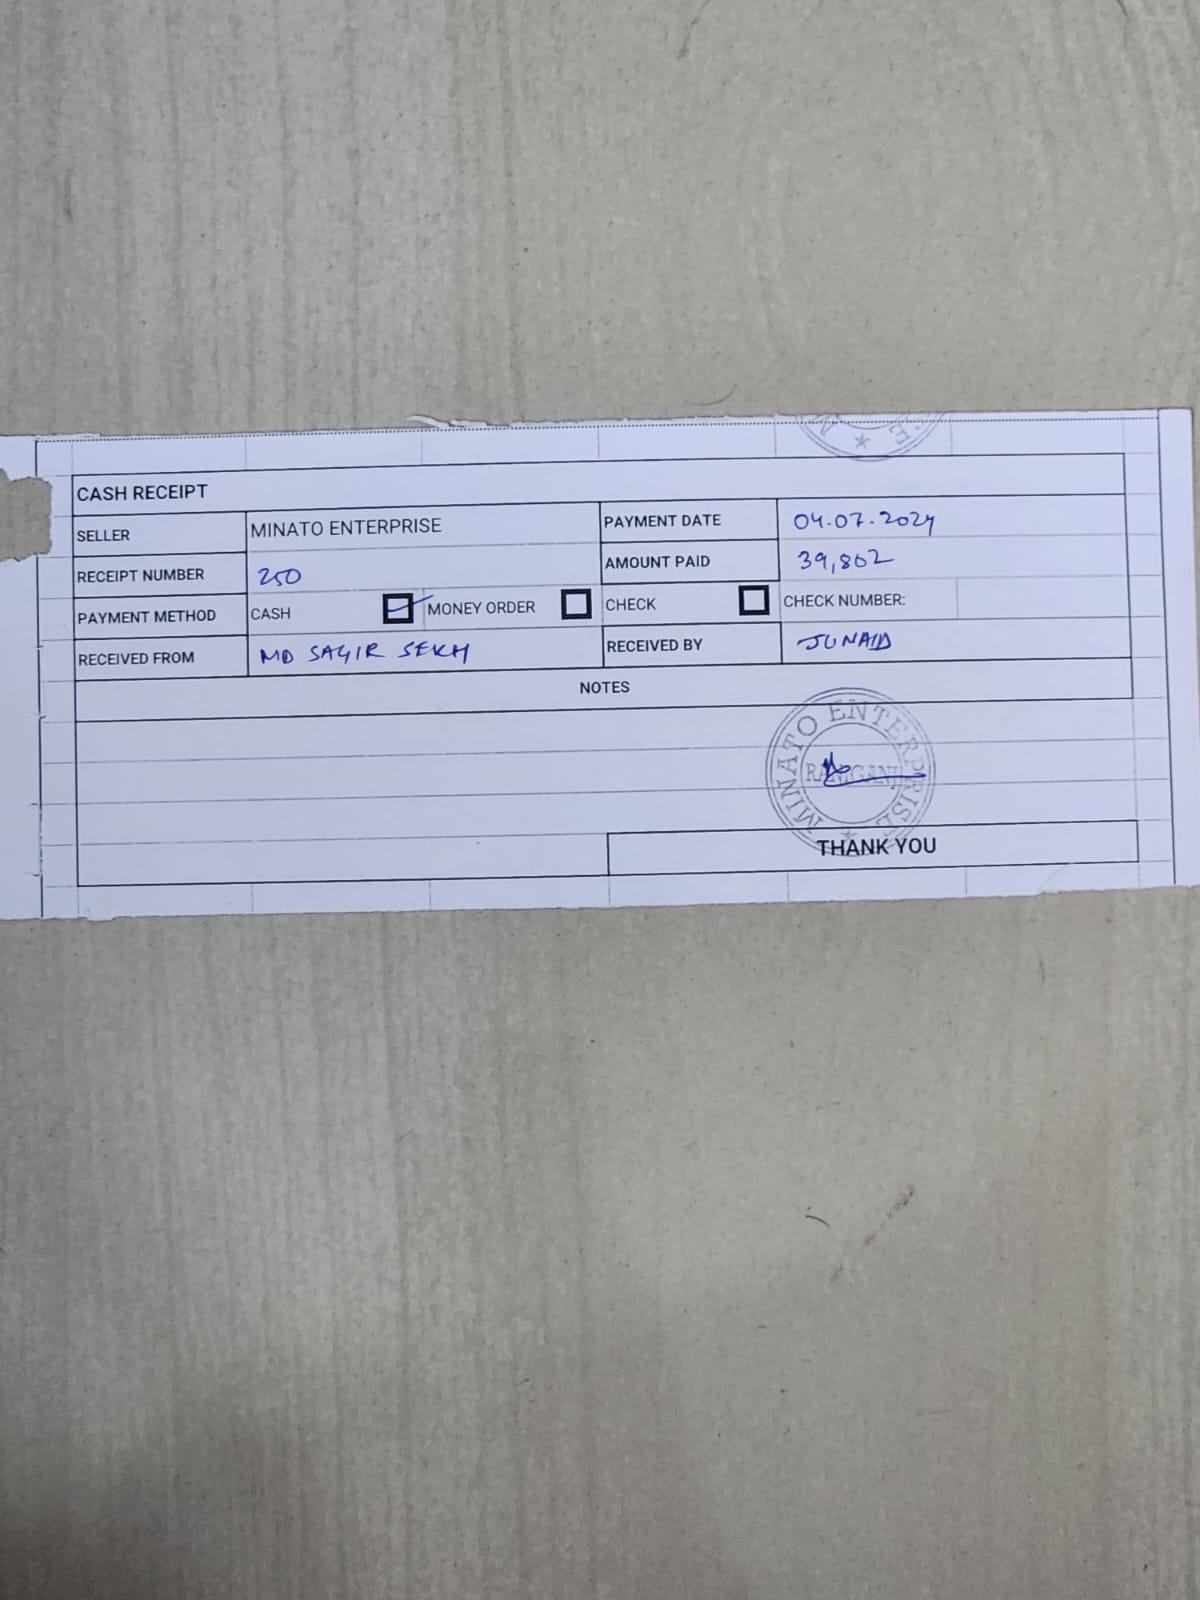 CASH RECEIPT
SELLER MINATO ENTERPRISE PAYMENT DATE 04.07.2024
RECEIPT NUMBER 250 AMOUNT PAID 39,802
PAYMENT METHOD CASH MONEY ORDER CHECK CHECK NUMBER:
RECEIVED FROM MD SAGIR SEKH RECEIVED BY JUNAID
NOTES
MINATO ENTERPRISE
RANIGANJ
THANK YOU